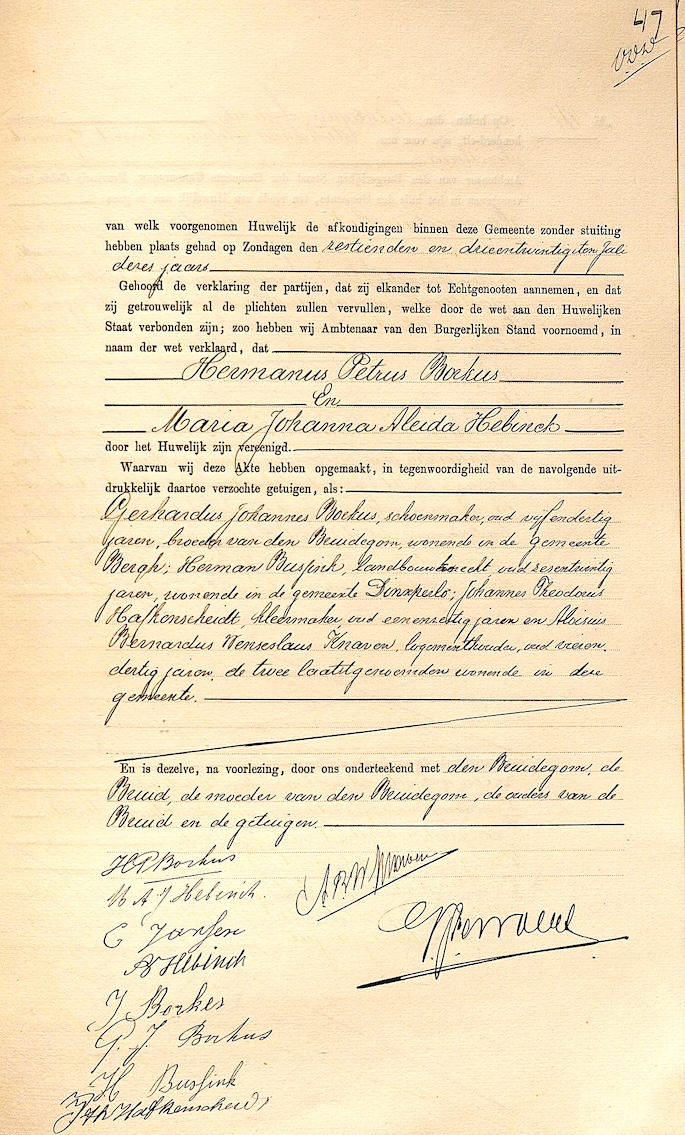 47
van welk voorgenomen Huwelijk de afkondigingen binnen deze Gemeente zonder stuiting
hebben plaats gehad op Zondagen den zestienden en drieentwintigsten Juli
dezes jaars
Gehoord de verklaring der partijen, dat zij elkander tot Echtgenooten aannemen, en dat
zij getrouwelijk al de plichten zullen vervullen, welke door de wet aan den Huwelijken
Staat verbonden zijn; zoo hebben wij Ambtenaar van den Burgerlijken Stand voornoemd, in
naam der wet verklaard, dat
Hermanus Petrus Borkus
En
Maria Johanna Aleida Hebinck
door het Huwelijk zijn vereenigd.
Waarvan wij deze Akte hebben opgemaakt, in tegenwoordigheid van de navolgende uit-
drukkelijk daartoe verzochte getuigen, als:
Gerhardus Johannes Borkus, schoenmaker, oud vijfendertig
jaren, broeder van den Bruidegom, wonende in de gemeente
Bergh; Herman Bussink, landbouwknecht oud zesentwintig
jaren, wonende in de gemeente Dinxperlo; Johannes Theodorus
Hafkenscheidt, kleermaker, oud eenenzestig jaren en Aloisius
Bernardus Wenseslaus Knaven, logementhouder, oud vieren-
dertig jaren, de twee laatstgenoemden wonende in deze
gemeente.
En is dezelve, na voorlezing, door ons onderteekend met den Bruidegom, de
Bruid, de moeder van den Bruidegom, de ouders van de
Bruid en de getuigen.
H P Borkus
M A J Hebinck
A B W Knaven
C Jansen
A Hebinck
J Borkes
G. J. Borkus
H Bussink
J Th Hafkenscheid